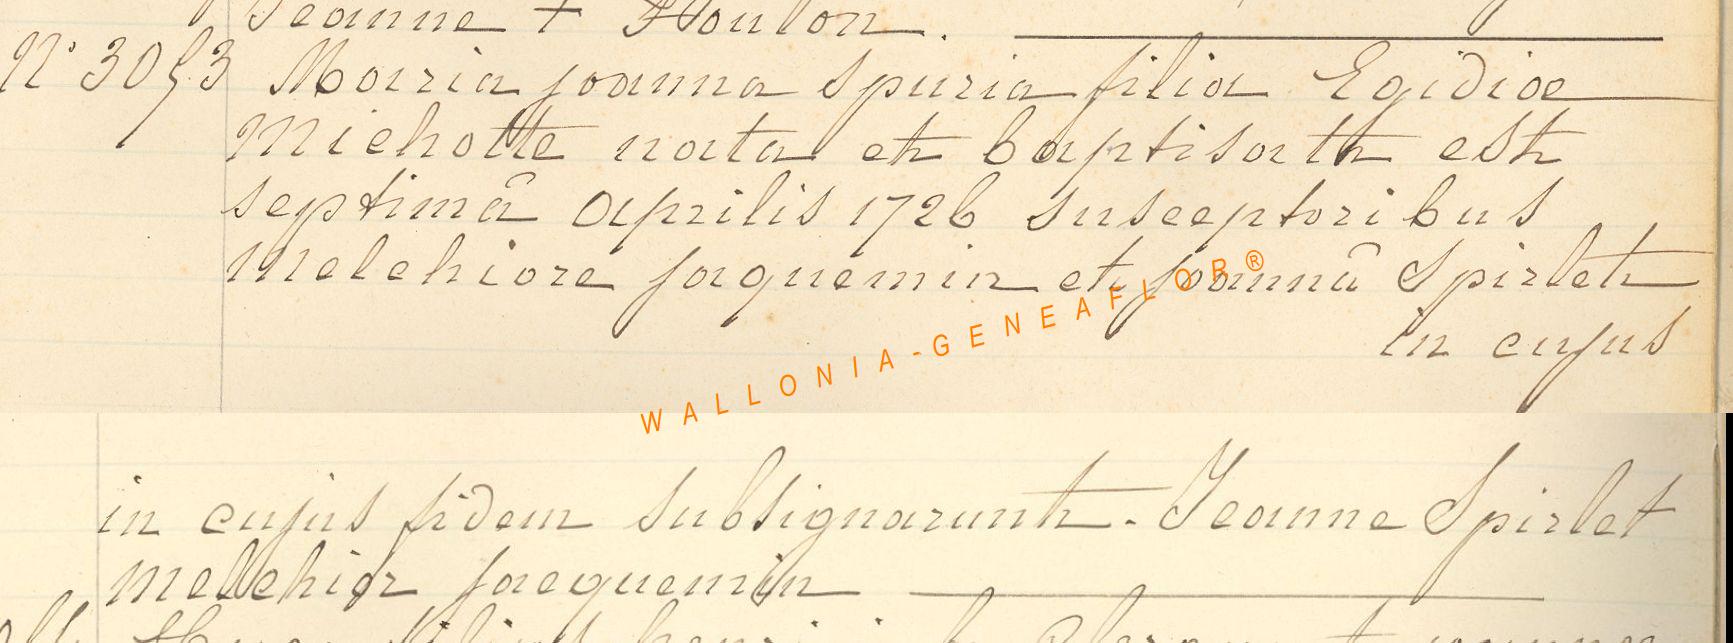 Jeanne + Houlon.
N° 3053 Maria joanna spuria filia Egidiae
Michotte nata et baptisatt est
septimâ aprilis 1726 susceptoribus
Melchiore jaquemin et joannâ Spirlet
in cujus
WALLONIA-GENEAFLOR®
in cujus fidem subsignarunt. Jeanne Spirlet
Melchior jacquemin